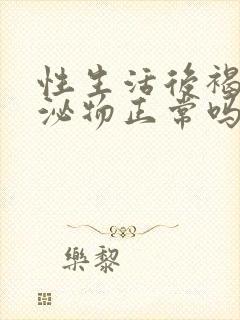 性生活後褐
泌物正常吗
樂黎